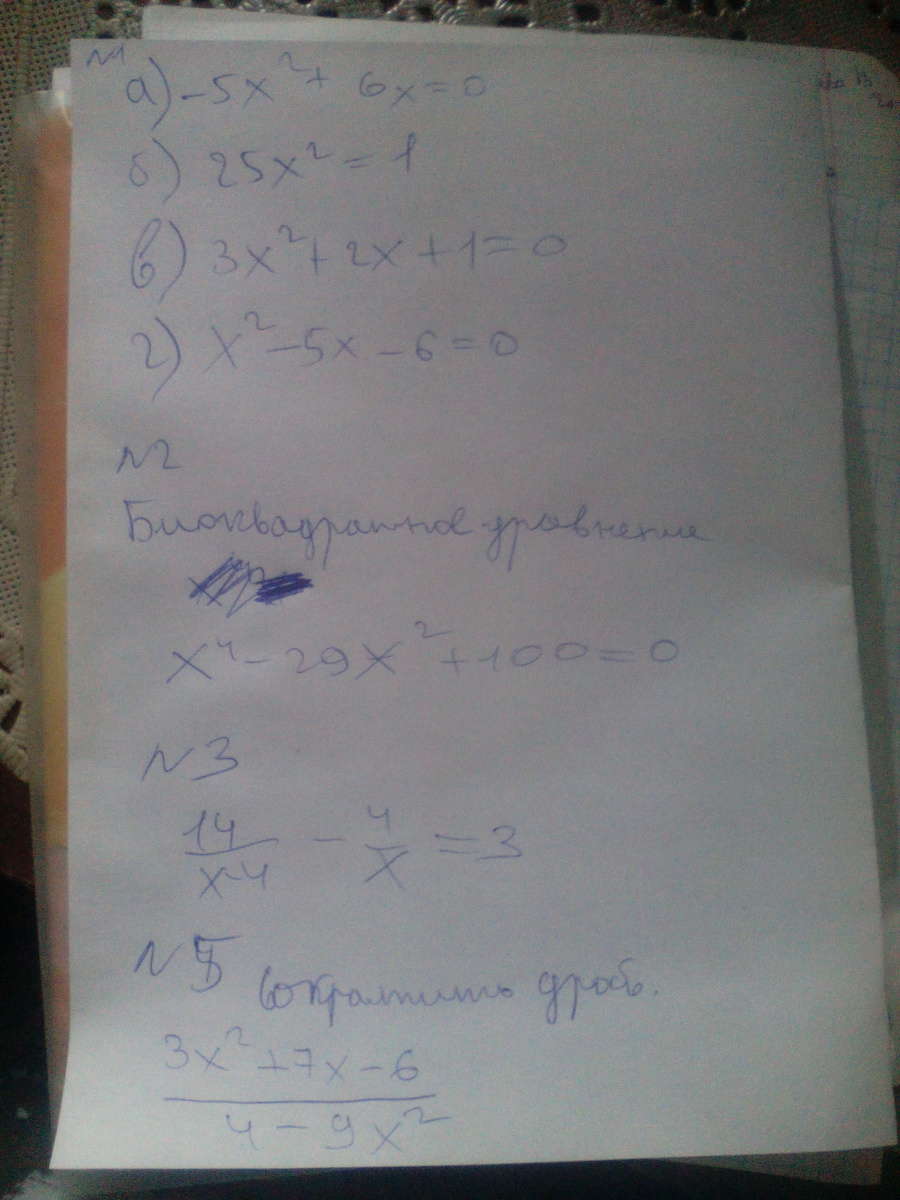 №1
а) -5x² + 6x = 0
б) 25x² = 1
в) 3x² + 2x + 1 = 0
г) x² - 5x - 6 = 0
№2
Биоквадратное уравнение
x⁴ - 29x² + 100 = 0
№3
14/(x-4) - 4/x = 3
№5 сократить дробь.
(3x² + 7x - 6)/(4 - 9x²)